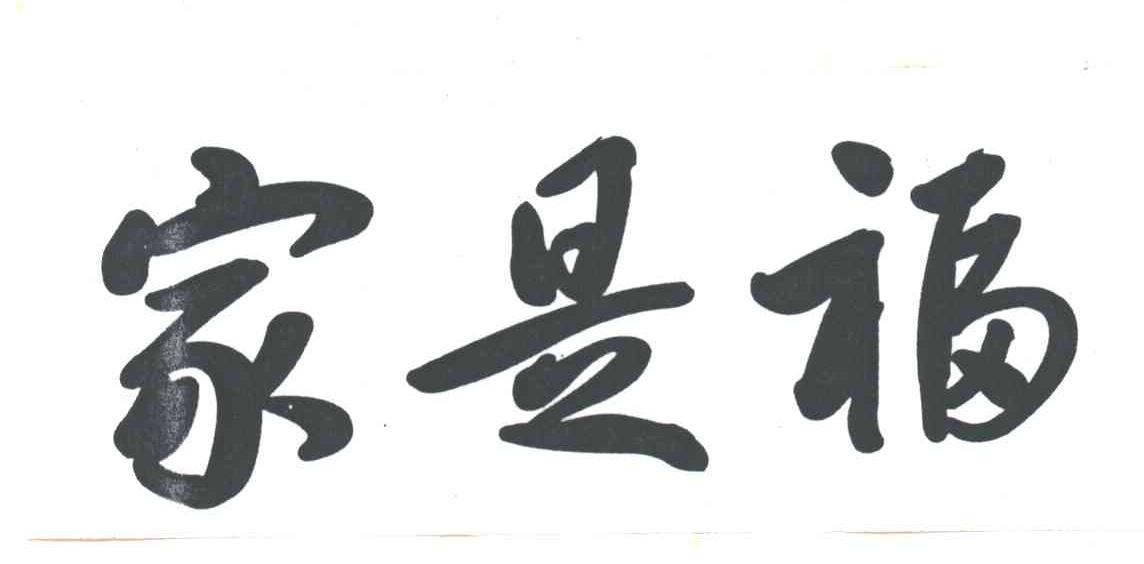 家是福